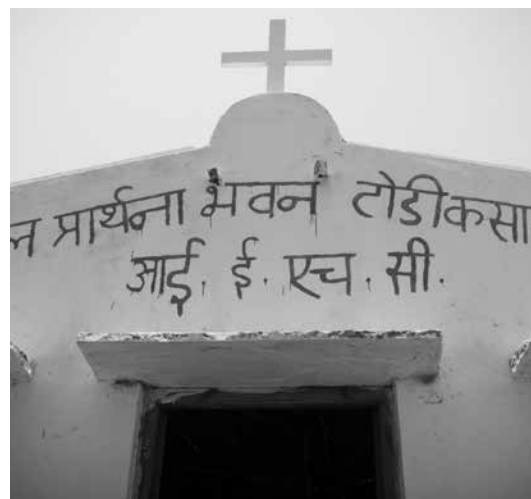 ल प्रार्थना भवन टोडीकसा
आई. ई. एच. सी.